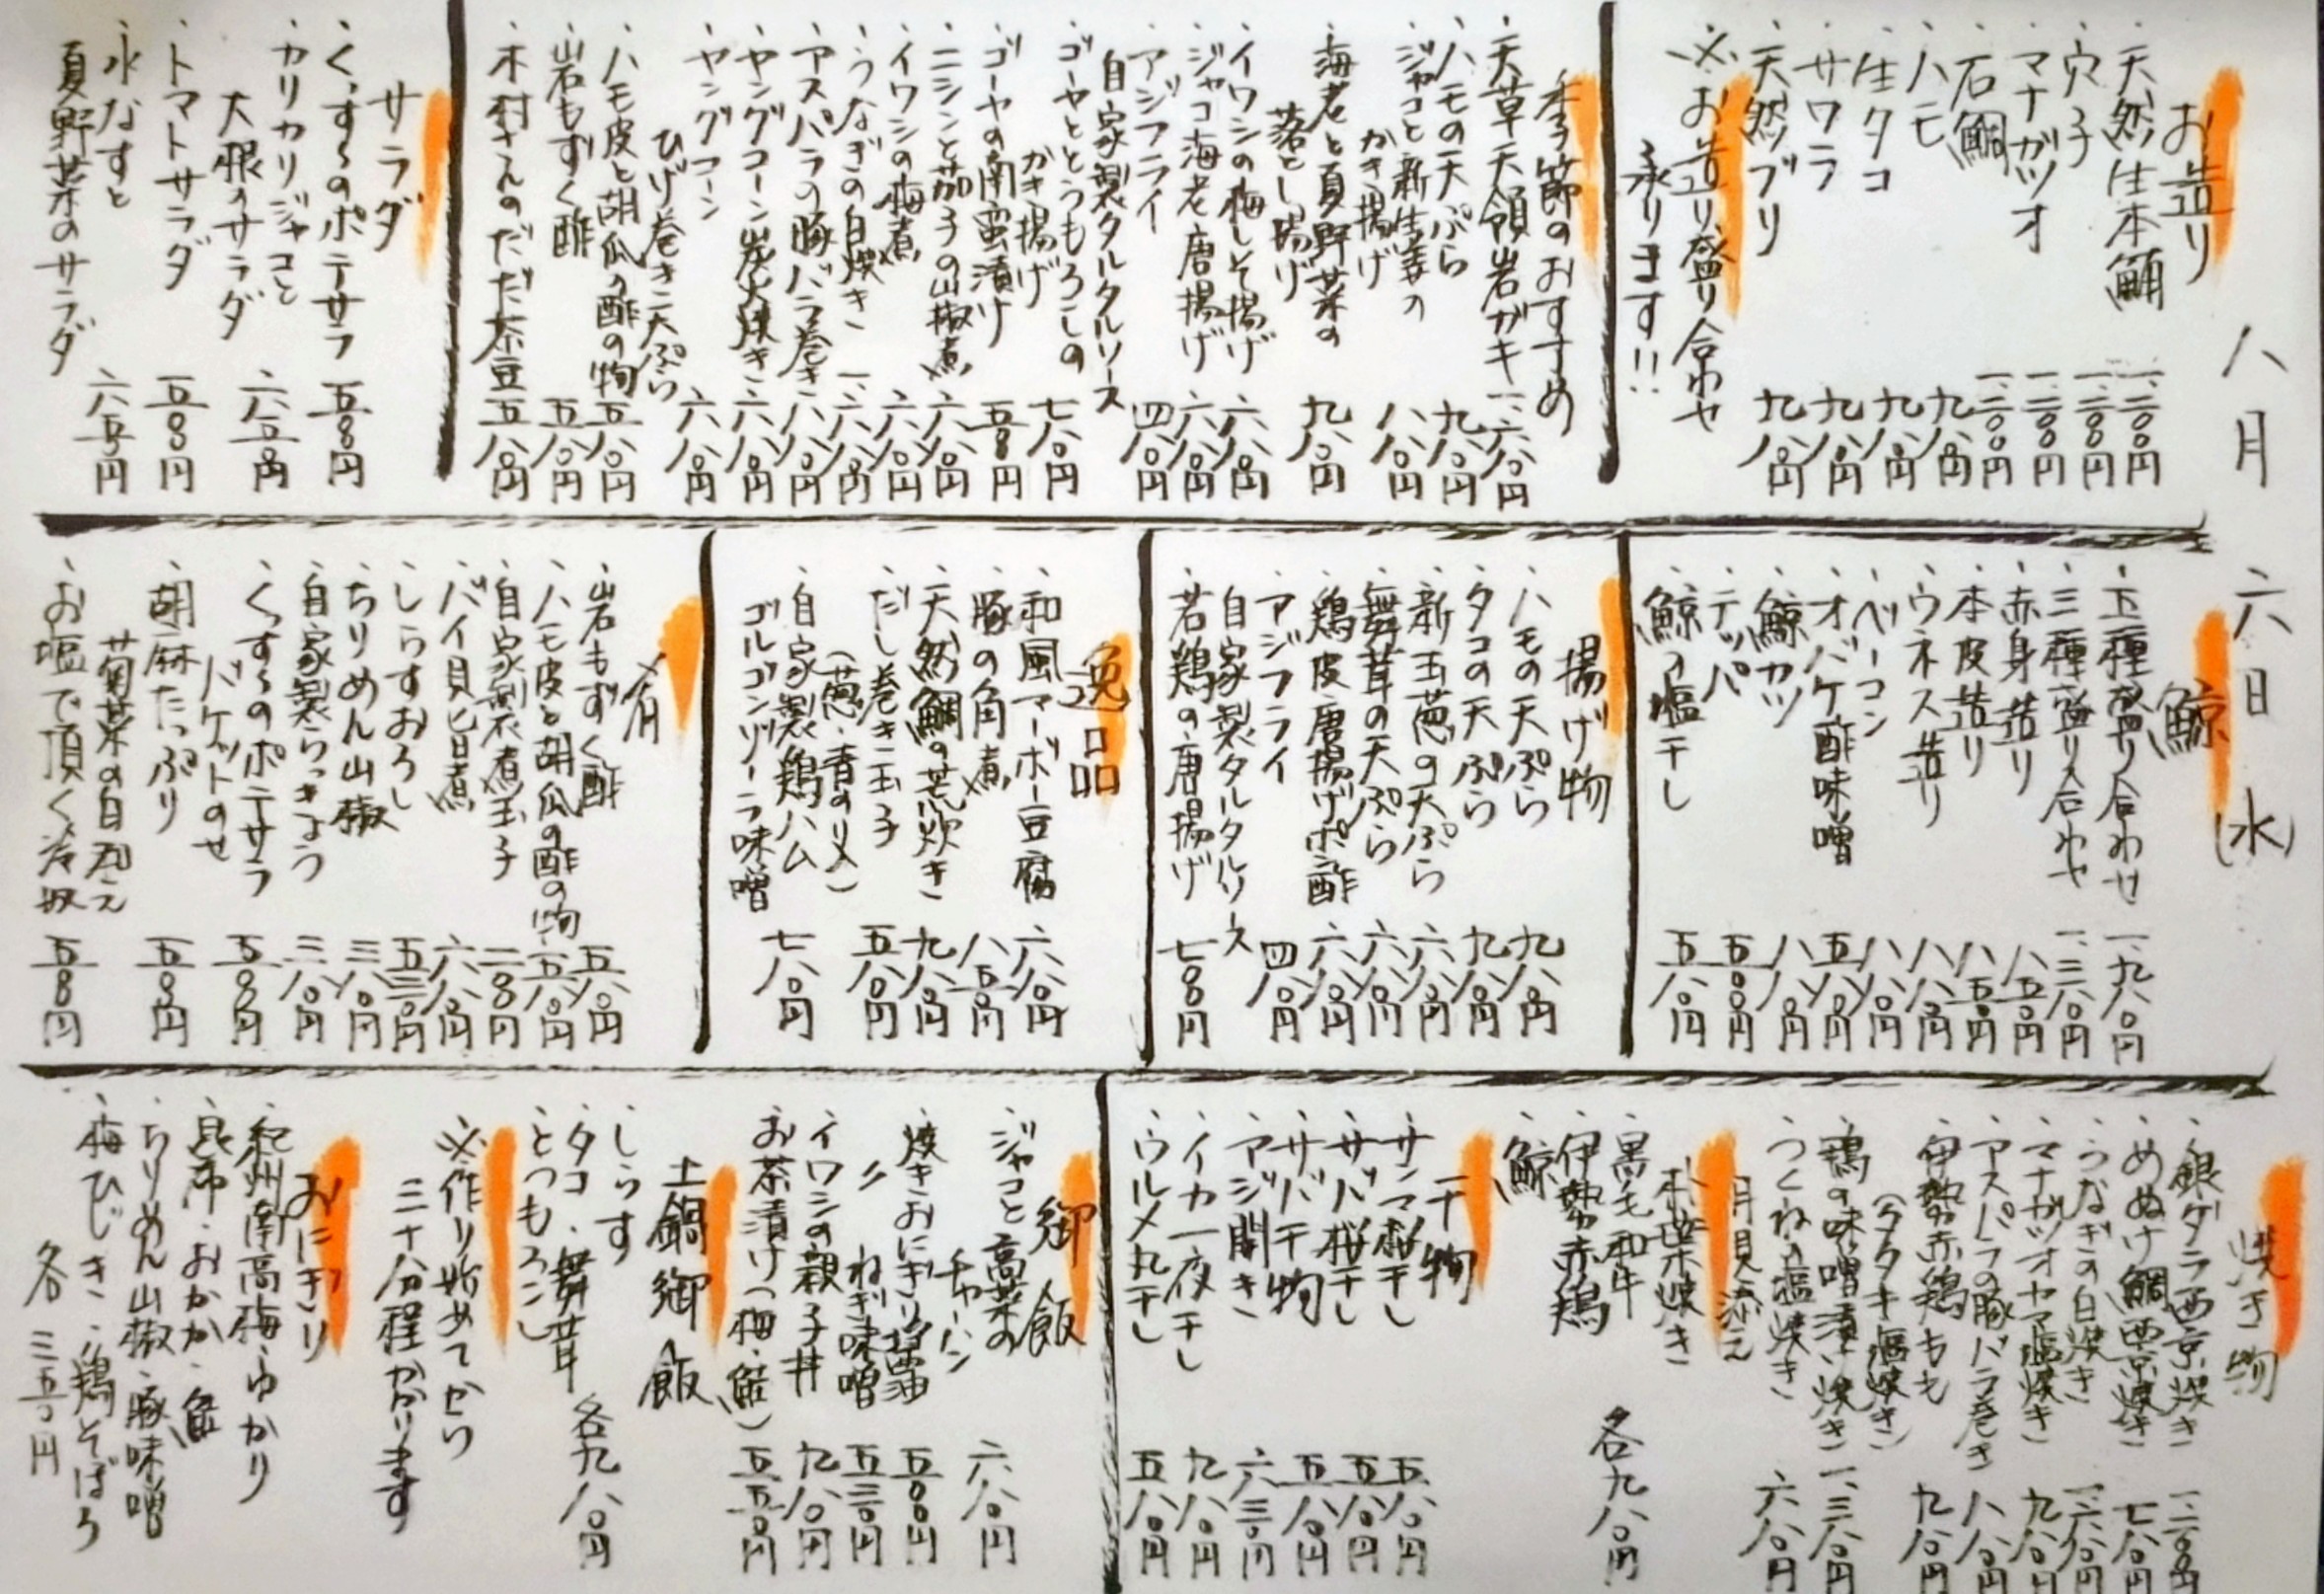 八月 六日(水)
お造り
・天然生本鮪 一、二〇〇円
・穴子 一、二〇〇円
・マナガツオ 一、二〇〇円
・石鯛 一、二〇〇円
・ハモ 九八〇円
・生タコ 九八〇円
・サワラ 九八〇円
・天然ブリ 九八〇円
※お造り盛り合わせ
承ります!!
季節のおすすめ
・天草天領岩ガキ 一、六八〇円
・ハモの天ぷら 九八〇円
・ジャコと新生姜の
かき揚げ 八八〇円
・海老と夏野菜の
落とし揚げ 九八〇円
・イワシの梅しそ揚げ 六八〇円
・ジャコ海老唐揚げ 六八〇円
・アジフライ 四八〇円
自家製タルタルソース
・ゴーヤととうもろこしの
かき揚げ 七八〇円
・ゴーヤの南蛮漬け 五八〇円
・ニシンと茄子の山椒煮 六八〇円
・イワシの梅煮 六八〇円
・うなぎの白焼き 一、六八〇円
・アスパラの豚バラ巻き 八八〇円
・ヤングコーン炭火焼き 六八〇円
・ヤングコーン 六八〇円
ひげ巻き天ぷら
・ハモ皮と胡瓜の酢の物 五八〇円
・岩もずく酢 五八〇円
・木村さんのだだ茶豆 五八〇円
サラダ
・くっすぅのポテサラ 五八〇円
・カリカリジャコと
大根のサラダ 六五〇円
・トマトサラダ 五八〇円
・水なすと
夏野菜のサラダ 六五〇円
鯨
・五種盛り合わせ 一、九八〇円
・三種盛り合わせ 一、三八〇円
・赤身造り 八五〇円
・本皮造り 八五〇円
・ウネス造り 八八〇円
・ベーコン 八八〇円
・オバケ酢味噌 五八〇円
・鯨カツ 八八〇円
・テッパ 五八〇円
・鯨の塩干し 五八〇円
揚げ物
・ハモの天ぷら 九八〇円
・タコの天ぷら 九八〇円
・新玉葱の天ぷら 六八〇円
・舞茸の天ぷら 六八〇円
・鶏皮唐揚げポン酢 六八〇円
・アジフライ 四八〇円
自家製タルタルソース
・若鶏の唐揚げ 七八〇円
逸品
・和風マーボー豆腐 六八〇円
・豚の角煮 八五〇円
・天然鯛の荒炊き 九八〇円
・だし巻き玉子 五八〇円
(葱・青のり)
・自家製鶏ハム
ゴルゴンゾーラ味噌 七八〇円
肴
・岩もずく酢 五八〇円
・ハモ皮と胡瓜の酢の物 五八〇円
・自家製煮玉子 二八〇円
・バイ貝旨煮 六八〇円
・しらすおろし 五三〇円
・ちりめん山椒 三八〇円
・自家製らっきょう 三八〇円
・くっすぅのポテサラ
バケットのせ 五八〇円
・胡麻たっぷり
菊菜の白和え 五八〇円
・お塩で頂く冷奴 五八〇円
焼き物
・銀ダラ西京焼き 一、二〇〇円
・めぬけ鯛西京焼き 七八〇円
・うなぎの白焼き 一、六八〇円
・マナガツオカマ塩焼き 九八〇円
・アスパラの豚バラ巻き 八八〇円
・伊勢赤鶏もも 九八〇円
(タタキ・塩焼き)
・鶏の味噌漬け焼き 一、三八〇円
・つくねの塩焼き 六八〇円
月見添え
朴葉焼き
・黒毛和牛
・伊勢赤鶏
・鯨
各九八〇円
干物
・サンマ桜干し 五八〇円
・サバ桜干し 五八〇円
・サバ干物 五八〇円
・アジ開き 六三〇円
・イカ一夜干し 九八〇円
・ウルメ丸干し 五八〇円
御飯
・ジャコと高菜の
チャーハン 六八〇円
・焼きおにぎり醤油 五〇〇円
・〃 ねぎ味噌 五三〇円
・イワシの親子丼 九八〇円
・お茶漬け(梅・鮭) 五五〇円
土鍋御飯
・しらす
・タコ ・舞茸
・とうもろこし
各九八〇円
※作り始めてから
三十分程かかります
おにぎり
・紀州南高梅・ゆかり
・昆布・おかか・鮭
・ちりめん山椒・豚味噌
・梅ひじき・鶏そぼろ
各 三五〇円